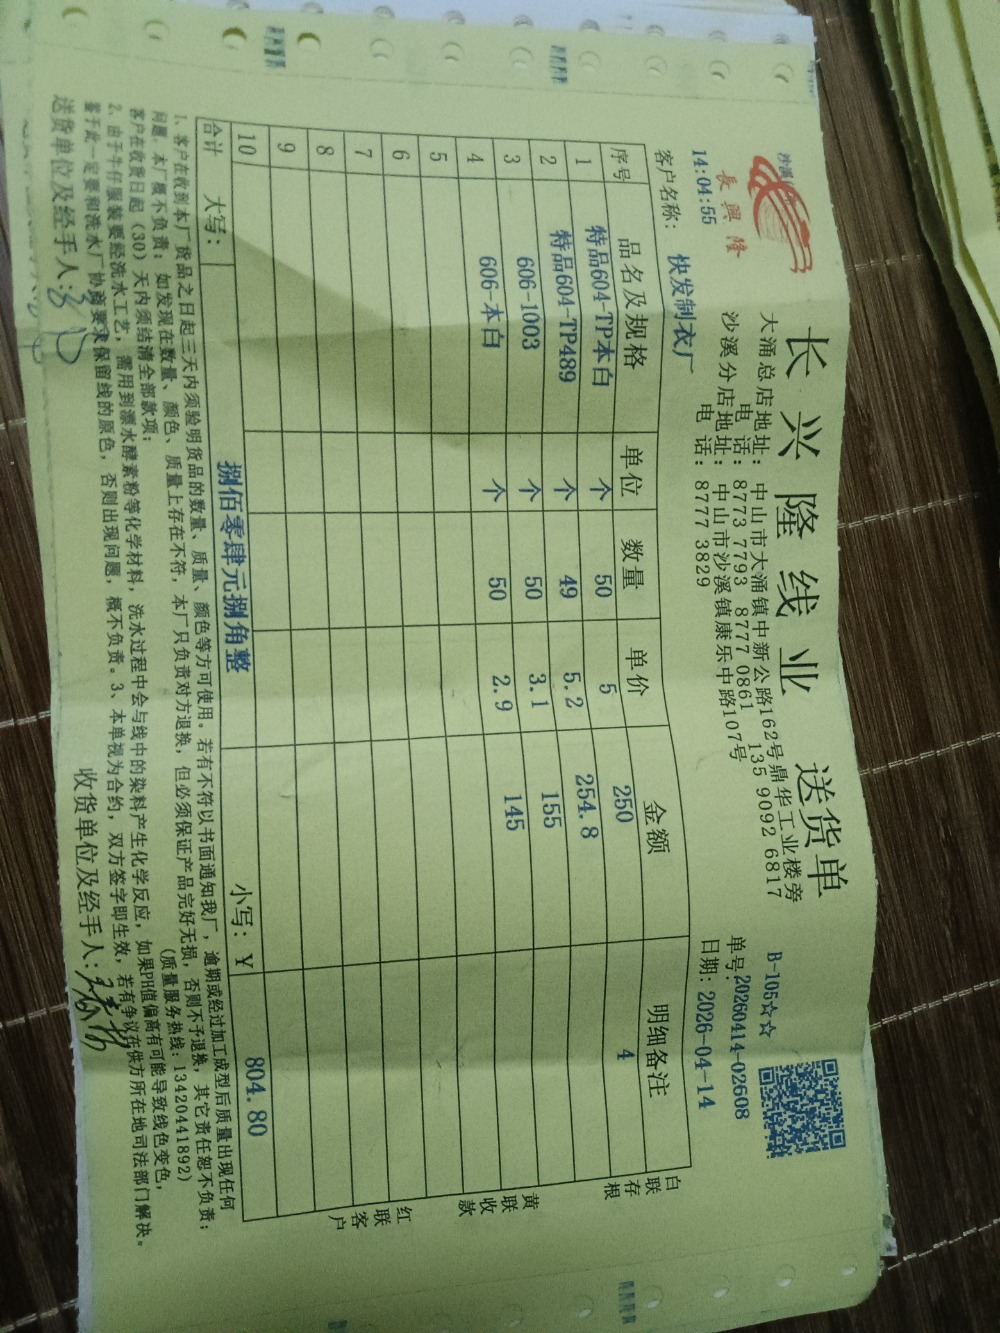 沙溪
長興隆
长兴隆线业 送货单
B-105☆☆
大涌总店地址：中山市大涌镇中新公路162号鼎华工业楼旁
电话：8773 7793 8777 0861 135 9092 6817
沙溪分店地址：中山市沙溪镇康乐中路107号
电话：8777 3829
单号：20260414-02608
14:04:55
日期：2026-04-14
客户名称：快发制衣厂
序号 品名及规格 单位 数量 单价 金额 明细备注
1 特品604-TP本白 个 50 5 250 4
2 特品604-TP489 个 49 5.2 254.8
3 606-1003 个 50 3.1 155
4 606-本白 个 50 2.9 145
5
6
7
8
9
10
合计 大写：捌佰零肆元捌角整 小写：￥ 804.80
白联存根
黄联收款
红联客户
1、客户在收到本厂货品之日起三天内须验明货品的数量、质量、颜色等方可使用。若有不符以书面通知我厂，逾期或经过加工成型后质量出现任何
问题，本厂概不负责；如发现在数量、颜色、质量上存在不符，本厂只负责对方退换，但必须保证产品完好无损，否则不予退换，其它责任恕不负责；
客户在收货日起（30）天内须结清全部款项；（质量服务热线：13420441892）
2、由于牛仔服装要经洗水工艺，需用到漂水酵素粉等化学材料，洗水过程中会与线中的染料产生化学反应，如果PH值偏高有可能导致线色变色，
鉴于此一定要和洗水厂协商要求保留线的原色，否则出现问题，概不负责。3、本单视为合约，双方签字即生效，若有争议在供方所在地司法部门解决。
送货单位及经手人：
收货单位及经手人：